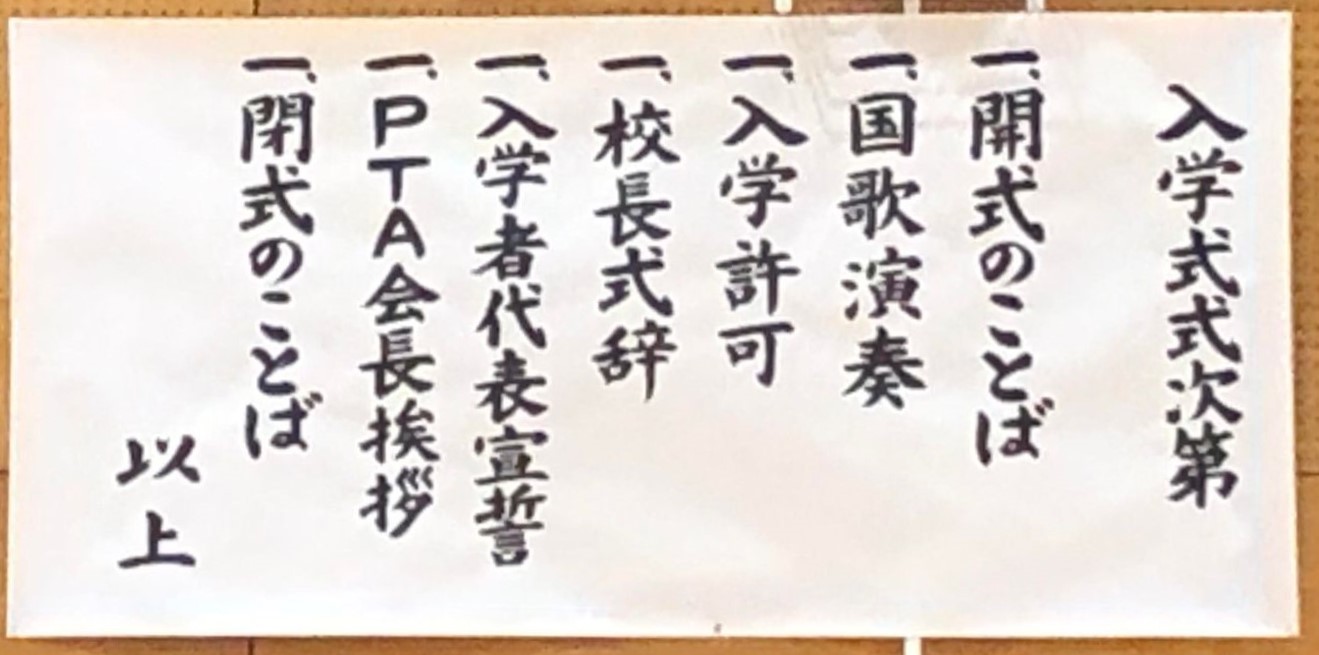 入学式式次第
一、開式のことば
一、国歌演奏
一、入学許可
一、校長式辞
一、入学者代表宣誓
一、PTA会長挨拶
一、閉式のことば
以上